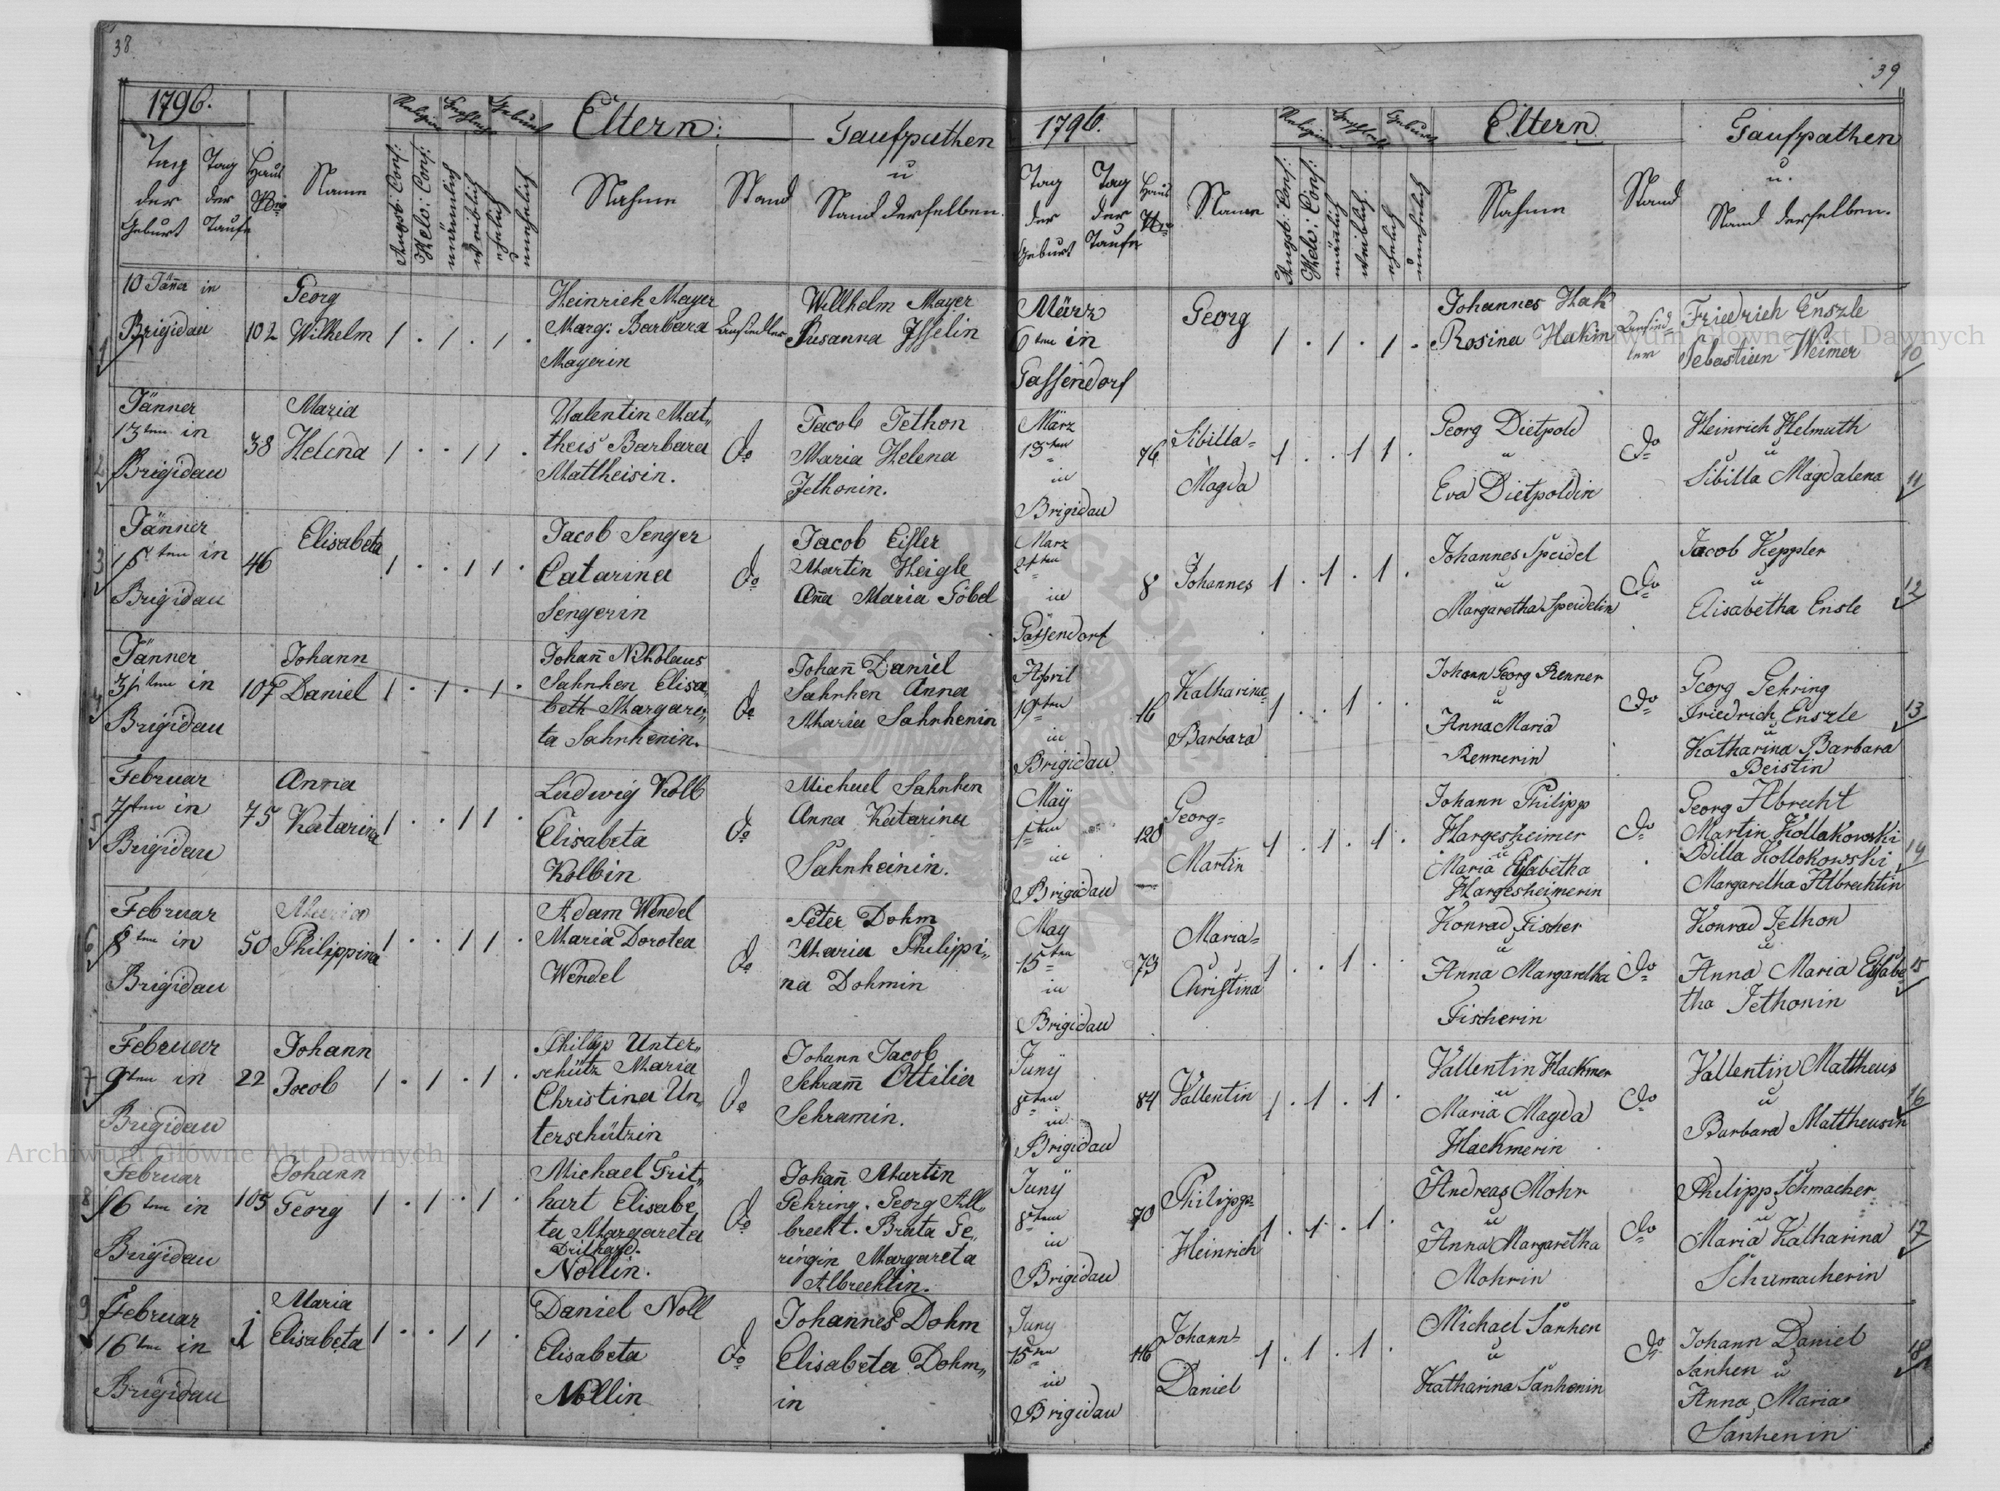 38
1796.
Religion
Geschlecht
Geburt
Eltern:
Taufpathen
u
Stand derselben.
Tag
der
Geburt
Tag
der
Taufe
Haus
Nro
Name
Augsb: Conf:
Helv: Conf:
männlich
weiblich
ehelich
unehelich
Nahme
Stand
1
10 Jänner in
Brigidau
102
Georg
Wilhelm
1 . 1 . 1 .
Heinrich Mayer
Marg: Barbara
Mayerin
Ansiedler
Willhelm Mayer
Susanna Isselin
2
Jänner
13ten in
Brigidau
38
Maria
Helena
1 . . 1 1 .
Valentin Mat„
theis Barbara
Mattheisin.
do
Jacob Jethon
Maria Helena
Jethonin.
3
Jänner
15ten in
Brigidau
46
Elisabeta
1 . . 1 1 .
Jacob Senger
Catarina
Sengerin
do
Jacob Eisler
Martin Heigle
Aña Maria Göbel
4
Jänner
31ten in
Brigidau
107
Johann
Daniel
1 . 1 . 1 .
Johañ Nikolaus
Sahnhen Elisa„
beth Margare„
ta Sahnhenin.
do
Johañ Daniel
Sahnhen Anna
Maria Sahnhenin
5
Februar
7ten in
Brigidau
75
Anna
Katarina
1 . . 1 1 .
Ludwig Kolb
Elisabeta
Kolbin
do
Michael Sahnhen
Anna Katarina
Sahnheinin.
6
Februar
8ten in
Brigidau
50
Maria
Philippina
1 . . 1 1 .
Adam Wendel
Maria Dorotea
Wendel
do
Peter Dohm
Maria Philippi„
na Dohmin
7
Februar
9ten in
Brigidau
22
Johann
Jacob
1 . 1 . 1 .
Philipp Unter„
schütz Maria
Christina Un„
terschützin
do
Johann Jacob
Schram̄ Ottilia
Schramin.
8
Februar
16ten in
Brigidau
105
Johann
Georg
1 . 1 . 1 .
Michael Trit„
hart Elisabe
ta Margareta
Drithard.
Nollin.
do
Johañ Martin
Gehring. Georg All„
brecht. Brata Ge„
ringin Margareta
Albrechtin.
9
Februar
16ten in
Brigidau
1
Maria
Elisabeta
1 . . 1 1 .
Daniel Noll
Elisabeta
Nollin
do
Johannes Dohm
Elisabeta Dohm„
in
39
1796.
Religion
Geschlecht
Geburt
Eltern
Taufpathen
u.
Stand derselben.
Tag
der
Geburt
Tag
der
Taufe
Haus
Nro
Name
Augsb: Conf:
Helv: Conf:
mänlich
weiblich.
ehelich
unehelich
Nahme
Stand
März
6ten in
Gassendorf
Georg
1 . 1 . 1 .
Johannes Hak
Rosina Hakin
Ansied„
ler
Friedrich Enszle
Sebastian Weimer
10
März
13ten
in
Brigidau
76
Sibilla=
Magda
1 . . 1 1 .
Georg Dietpold
u
Eva Dietpoldin
do
Heinrich Helmuth
u
Sibilla Magdalena
11
März
21ten
in
Gassendorf
8
Johannes
1 . 1 . 1 .
Johannes Speidel
u
Margaretha Speidelin
do
Jacob Keppler
u
Elisabetha Ensle
12
April
19ten
in
Brigidau
16
Katharina=
Barbara
1 . . 1 . .
Johann Georg Renner
u
Anna Maria
Rennerin
do
Georg Gehring
Friedrich Enszle
u
Katharina Barbara
Beistin
13
May
1ten
in
Brigidau
120
Georg=
Martin
1 . 1 . 1 .
Johann Philipp
Hargesheimer
u
Maria Elisabetha
Hargesheimerin
do
Georg Albrecht
Martin Kollakowski
Odilla Kollokowski
Margaretha Albrechtin
14
May
15ten
in
Brigidau
73
Maria=
Christina
1 . . 1 . .
Konrad Fischer
u
Anna Margaretha
Fischerin
do
Konrad Jethon
u
Anna Maria Elisabe
tha Jethonin
15
Juny
8ten
in
Brigidau
84
Vallentin
1 . 1 . 1 .
Vallentin Hackmer
u
Maria Magda
Hackmerin
do
Vallentin Mattheus
u
Barbara Mattheusin
16
Juny
8ten
in
Brigidau
70
Philipp=
Heinrich
1 . 1 . 1 .
Andreas Mohr
u
Anna Margaretha
Mohrin
do
Philipp Schmacher
u
Maria Katharina
Schumacherin
17
Juny
15ten
in
Brigidau
116
Johann=
Daniel
1 . 1 . 1 .
Michael Sanhen
u
Katharina Sanhenin
do
Johann Daniel
Sanhen u
Anna Maria
Sanhenin
18
Archiwum Główne Akt Dawnych